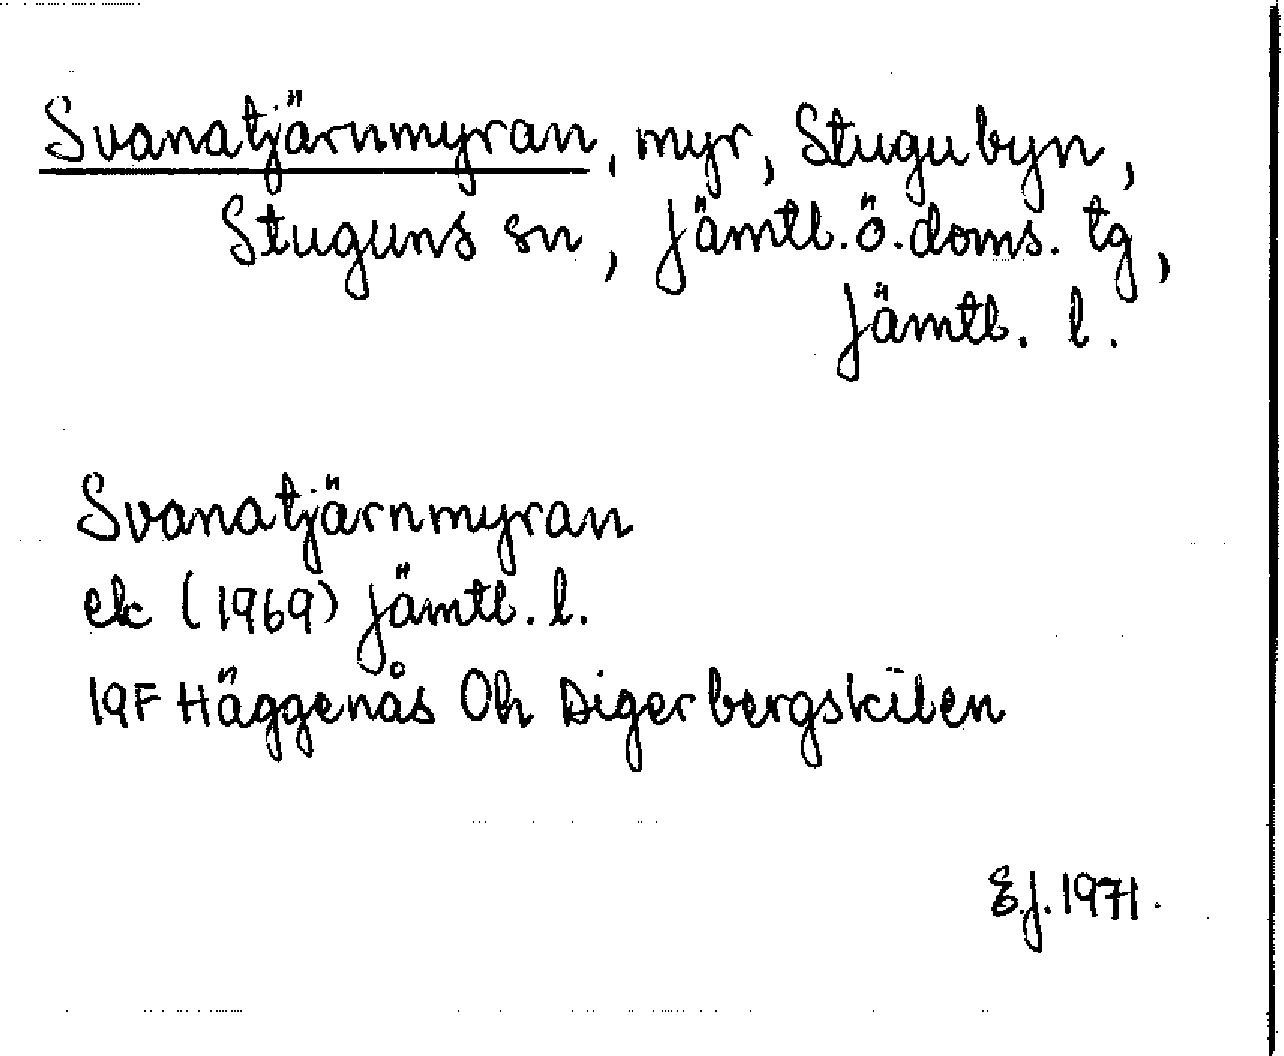 Svanatjärnmyran, myr, Stugubyn,
Stuguns sn, Jämtl.ö.doms. tg,
Jämtl. l.
Svanatjärnmyran
ek (1969) Jämtl. l.
19F Häggenås Oh Digerbergskilen
E.J. 1971.